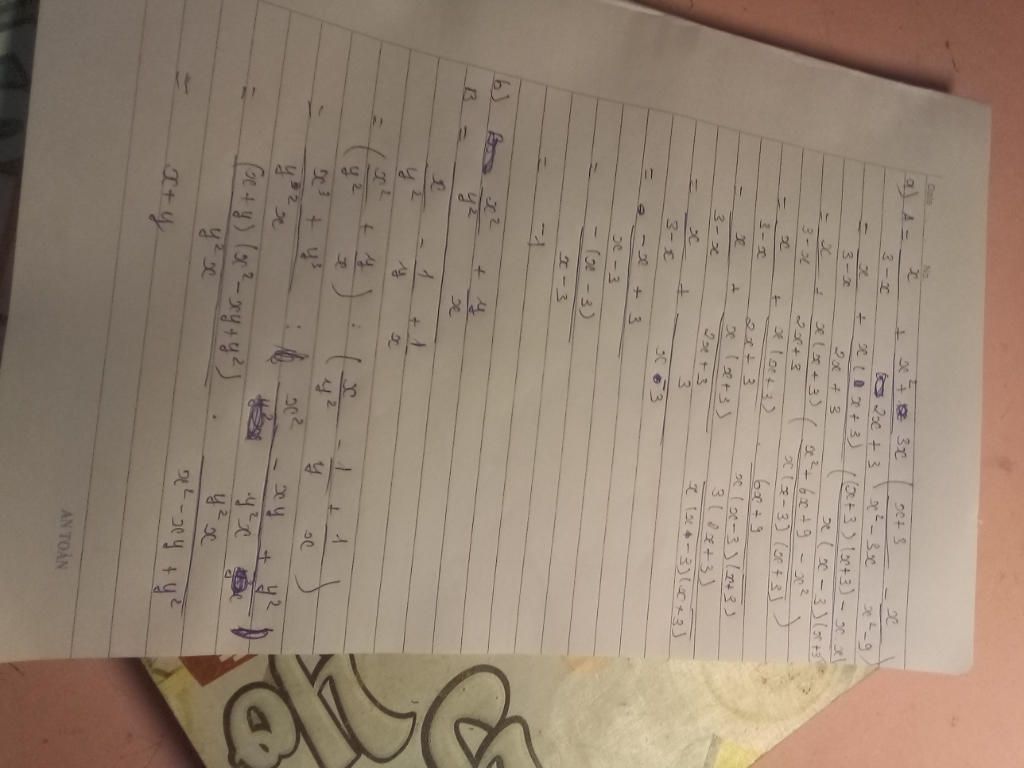 a) A = x/(3-x) + (x² + 3x)/(2x+3) · ((x+3)/(x²-3x) - x/(x²-9))
= x/(3-x) + x(x+3)/(2x+3) · ((x+3)(x+3) - x·x)/(x(x-3)(x+3))
= x/(3-x) + x(x+3)/(2x+3) · (x² + 6x + 9 - x²)/(x(x-3)(x+3))
= x/(3-x) + x(x+3)/(2x+3) · (6x+9)/(x(x-3)(x+3))
= x/(3-x) + x(x+3)/(2x+3) · 3(2x+3)/(x(x-3)(x+3))
= x/(3-x) + 3/(x-3)
= (-x+3)/(x-3)
= -(x-3)/(x-3)
= -1
b) B = (x²/y² + y/x)/(x/y² - 1/y + 1/x)
= (x²/y² + y/x) : (x/y² - 1/y + 1/x)
= (x³ + y³)/(y²x) : (x² - xy + y²)/(y²x)
= (x+y)(x² - xy + y²)/(y²x) · y²x/(x² - xy + y²)
= x + y
AN TOÀN